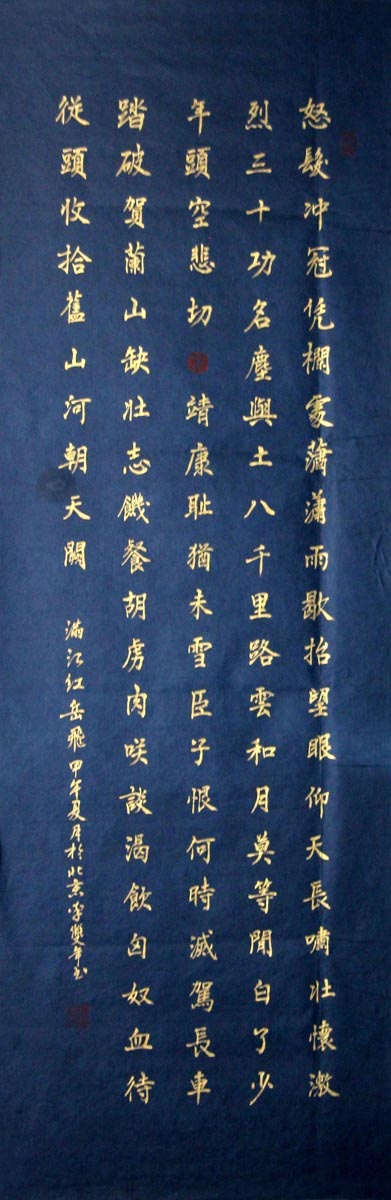 怒髮冲冠凭欄處瀟瀟雨歇抬望眼仰天長嘯壯懷激
烈三十功名塵與土八千里路雲和月莫等閒白了少
年頭空悲切靖康耻猶未雪臣子恨何時滅駕長車
踏破賀蘭山缺壯志饑餐胡虜肉咲談渴飲匈奴血待
從頭收拾舊山河朝天闕
滿江紅岳飛甲午夏月於北京李雙年书